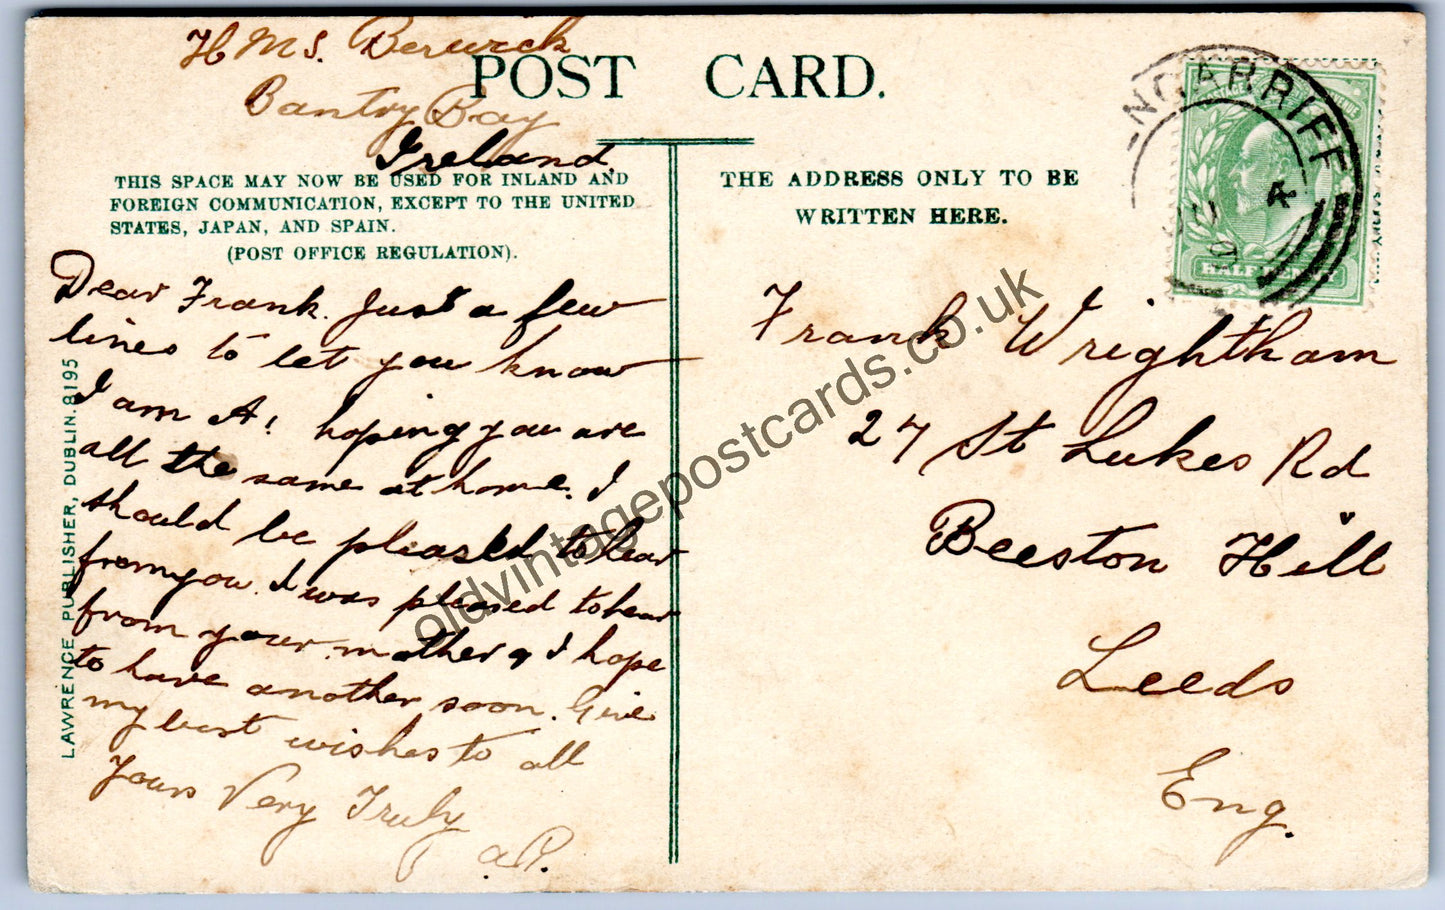 H M S. Berwick
Bantry Bay
Ireland.
POST CARD.
THIS SPACE MAY NOW BE USED FOR INLAND AND
FOREIGN COMMUNICATION, EXCEPT TO THE UNITED
STATES, JAPAN, AND SPAIN.
(POST OFFICE REGULATION).
Dear Frank. Just a few
lines to let you know
I am A1 hoping you are
all the same at home. I
should be pleased to hear
from you. I was pleased to hear
from your mother & I hope
to have another soon. Give
my best wishes to all
Yours Very Truly
a.P.
LAWRENCE PUBLISHER, DUBLIN. 8195
THE ADDRESS ONLY TO BE
WRITTEN HERE.
NGARRIFF
POSTAGE
HALFPENNY
Frank Wrightham
27 St Lukes Rd
Beeston Hill
Leeds
Eng.
oldvintagepostcards.co.uk